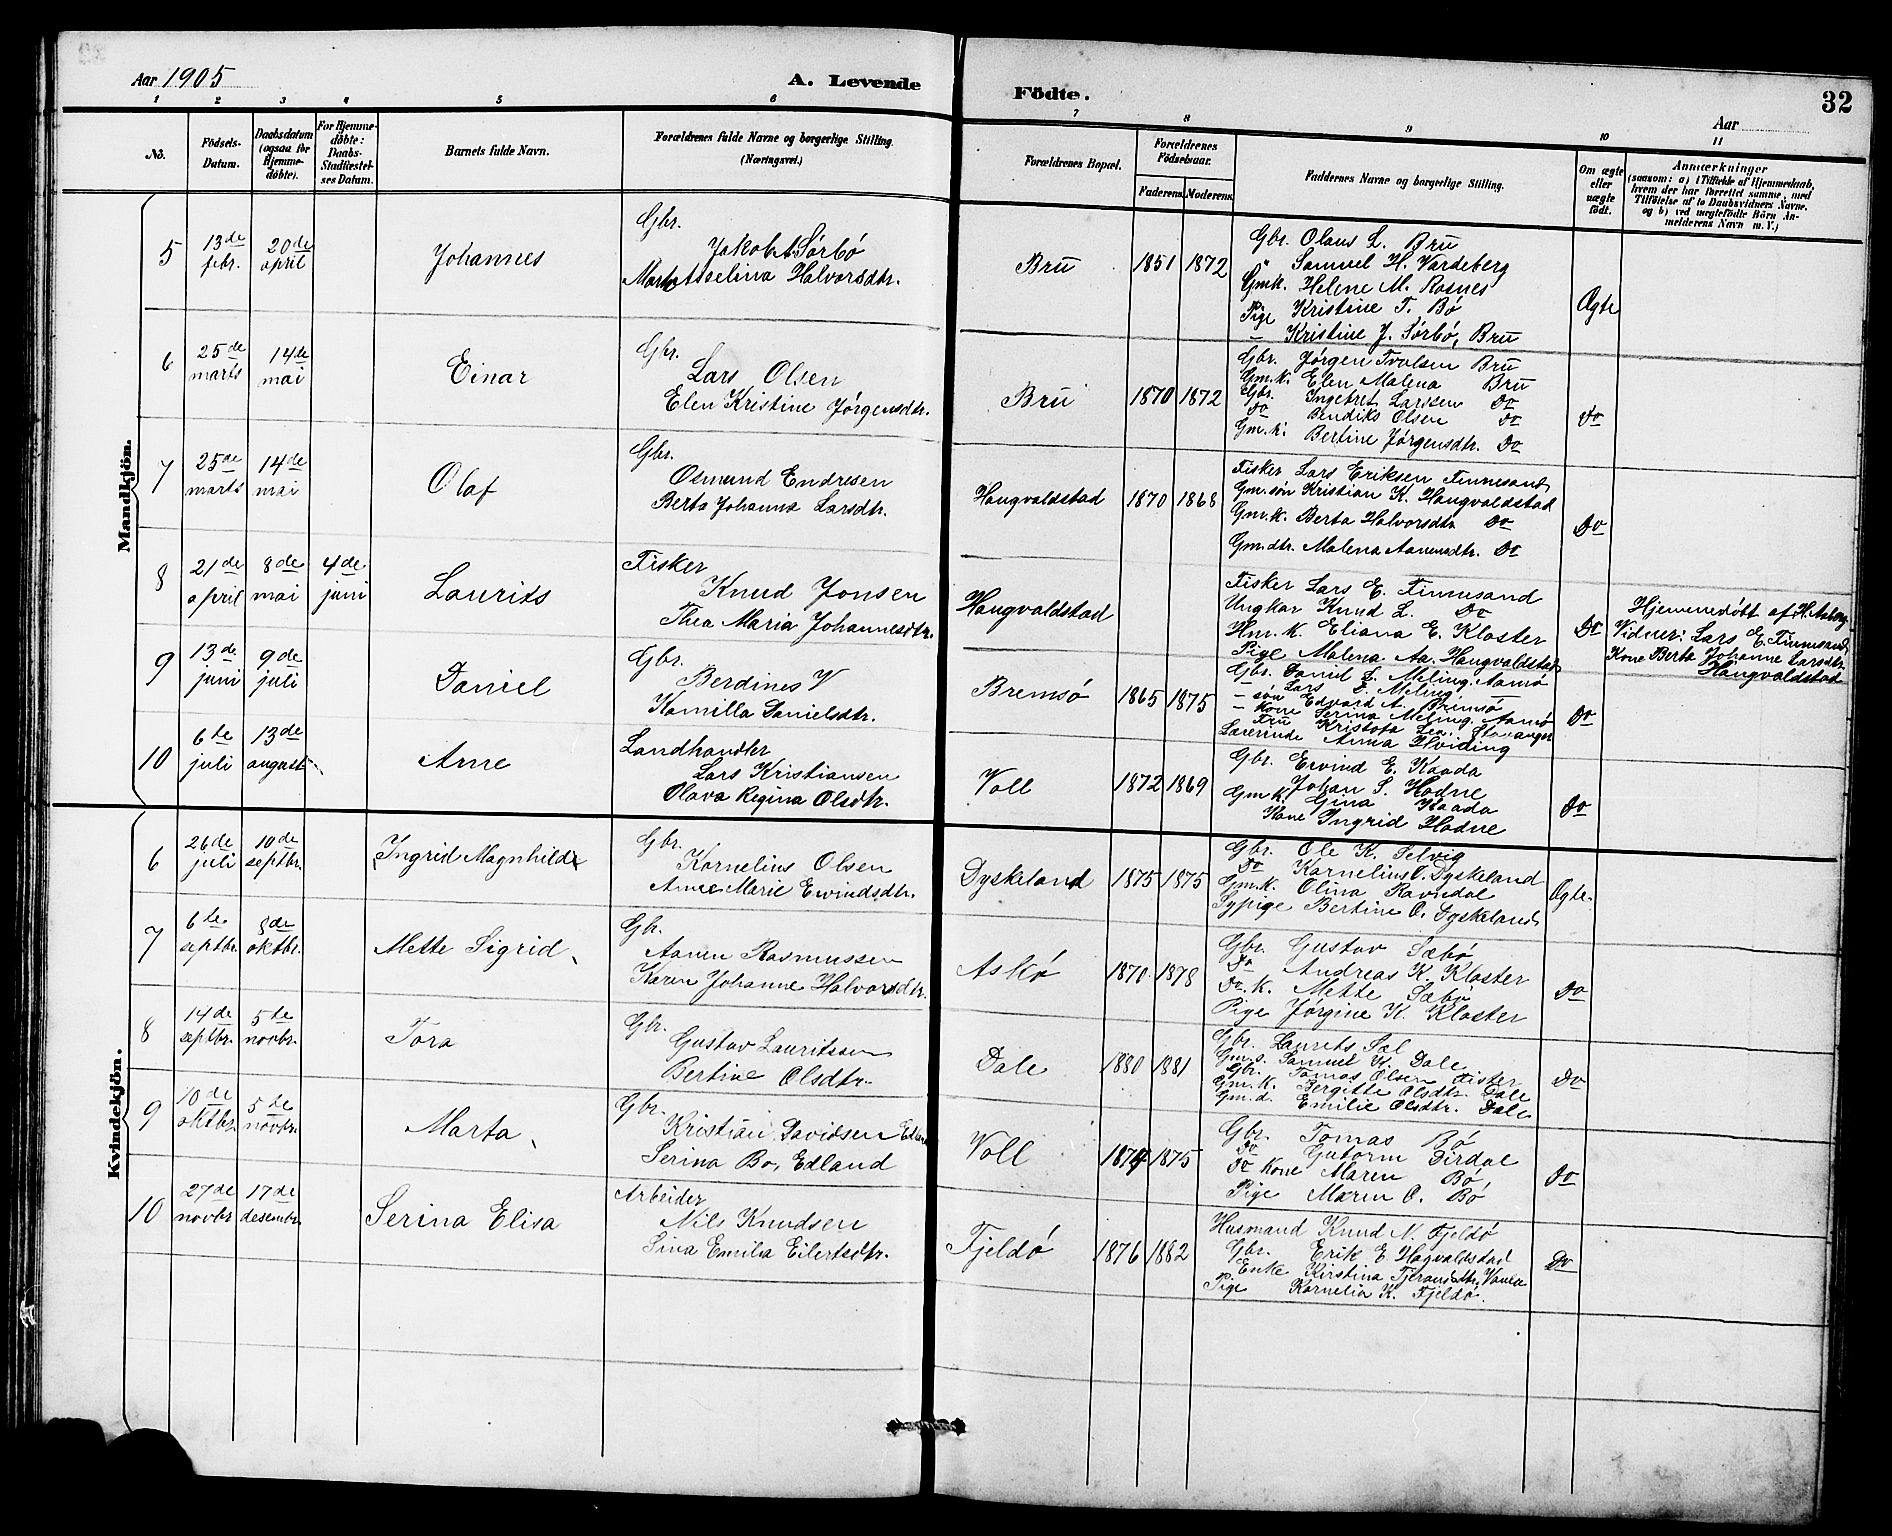 Aar 1905
A. Levende Födte.
32
Aar
1 2 3 4 5 6 7 8 9 10 11
No.
Födsels-Datum.
Daabsdatum (ogsaa for Hjemme-döbte).
For Hjemme-döbte: Daabs-Stadfæstel-ses Datum.
Barnets fulde Navn.
Forældrenes fulde Navne og borgerlige Stilling. (Næringsvei.)
Forældrenes Bopæl.
Forældrenes Födselsaar.
Faderens. Moderens.
Faddernes Navne og borgerlige Stilling.
Om ægte eller uægte födt.
Anmærkninger
(saasom: a) i Tilfælde af Hjemmedaab,
hvem der har forrettet samme, med
Tilföielse af to Daabsvidners Navne.
og b) ved uægtefödte Börn An-
melderens Navn m. V.)
Mandkjön.
5 13de febr. 20de april Johannes
Gbr.
Jakob A Sörbö
Marta Asselina Halvorsdtr.
Bru 1851 1872
Gbr. Olaus L. Bru
" Samuel H. Vardeberg
Gmk. Helene M. Rosnes
Pige Kristine T. Bö
— Kristine J. Sörbö, Bru
Ægte
6 25de marts 14de mai Einar
Gbr.
Lars Olsen
Elen Kristine Jörgensdtr.
Bru 1870 1872
Gbr. Jörgen Tvolsen Bru
Gm.k. Elen Malena Bru
Gbr. Ingebret Larssen Do
Do Bendiks Olsen Do
Gm.k. Bertine Jörgensdtr. Do
Do
7 25de marts 14de mai Olaf
Gbr.
Osmund Endresen
Berta Johanna Larsdtr.
Haugvaldstad 1870 1868
Fisker Lars Eriksen Finnesand
Gm.sön Kristian K. Haugvaldstad
Gm.k. Berta Halvorsdtr Do
Gm.dtr. Malena Aanensdtr. Do
Do
8 21de april 8de mai 4de juni Laurits
Fisker
Knud Jonsen
Thea Maria Johannesdtr.
Haugvaldstad
Fisker Lars E. Finnesand
Ungkar Knud L. Do
Hm.k. Eliana E. Kloster
Pige Malena Aa. Haugvaldstad
Do
Hjemmedöbt af H. Asberg
Vidner: Lars E. Finnesand,
Kone Berta Johanne Larsdtr.
Haugvaldstad
9 13de juni 9de juli Daniel
Gbr.
Berdines V
Kamilla Danielsdtr.
Bremsö 1865 1875
Gbr. Daniel L. Meling. Aamö
— sön Lars L. Meling
— Edvard A. Bremsö
— Kone Serina Meling. Aamö
Fru Kristofa Lea. Stavanger
Lærerinde Anna Hviding
Do
10 6te juli 13de august Arne
Landhandler
Lars Kristiansen
Olava Regina Olsdtr.
Voll 1872 1869
Gbr. Eivind E. Kaada
Johan S. Hodne
Gm.k. Gina Kaada
Kone Ingrid Hodne
Do
Kvindekjön.
6 26de juli 10de septbr. Ingrid Magnhild
Gbr.
Kornelius Olsen
Anne Marie Eivindsdtr.
Dyskeland 1875 1875
Gbr. Ole K. Selvig
Do Kornelius O. Dyskeland
Gm.k. Olina Ravndal
Sypige Bertine O. Dyskeland
Ægte.
7 6te septbr. 8de oktbr. Mette Sigrid
Gbr.
Aanen Rasmussen
Karen Johanne Halvorsdtr.
Askö 1870 1878
Gbr. Gustav Sæbö
Do Andreas K. Kloster
Do. K. Mette Sæbö
Pige Jörgine K. Kloster
Do
8 14de septbr. 5te novbr. Tora
Gbr.
Gustav Lauritssen
Bertine Olsdtr.
Dale 1880 1881
Gbr. Laurits Sæl
Gm.s. Samuel Dale
Gbr. Tomas Olsen Fister
Gm.k. Bergitte Olsdtr. Dale
Gm.d. Emilie Olsdtr. Dale
Do
9 10de oktbr. 5te novbr. Marta
Gbr.
Kristian Davidsen Edland
Serina Bo, Edland
Voll 1874 1875
Gbr. Tomas Bö
Do Gutorm Dirdal
Do Kone Maren Bö
Pige Maren O. Bö
Do
10 27de novbr 17de desembr. Serina Elisa
Arbeider
Nils Knudsen
Sina Emilia Eilertsdtr.
Fjeldö 1876 1882
Husmand Knud N. Fjeldö
Gbr. Erik E. Hagvaldstad
Enke Kirstina Tjeransdtr. Vanen
Pige Kornelia K. Fjeldö.
Do